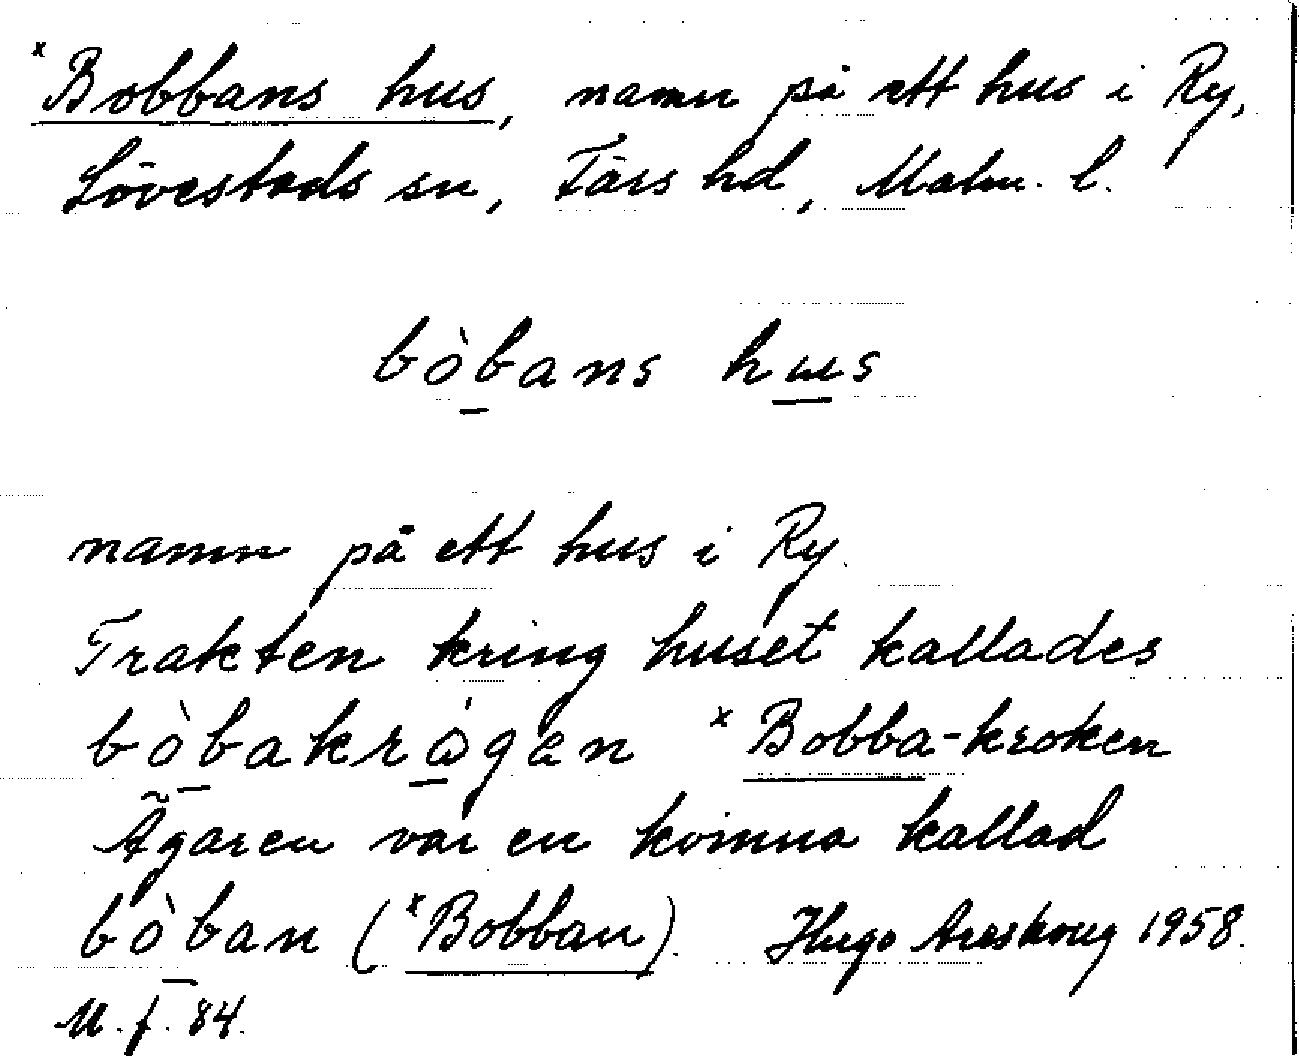 *Bobbans hus, namn på ett hus i Ry,
Lövestads sn, Färs hd, Malm. l.
bòbans hus
namn på ett hus i Ry.
Trakten kring huset kallades
bòbakrågan *Bobba-kroken
Ägaren var en kvinna kallad
bòban (*Bobban). Hugo Areskoug 1958.
M. f. 84.